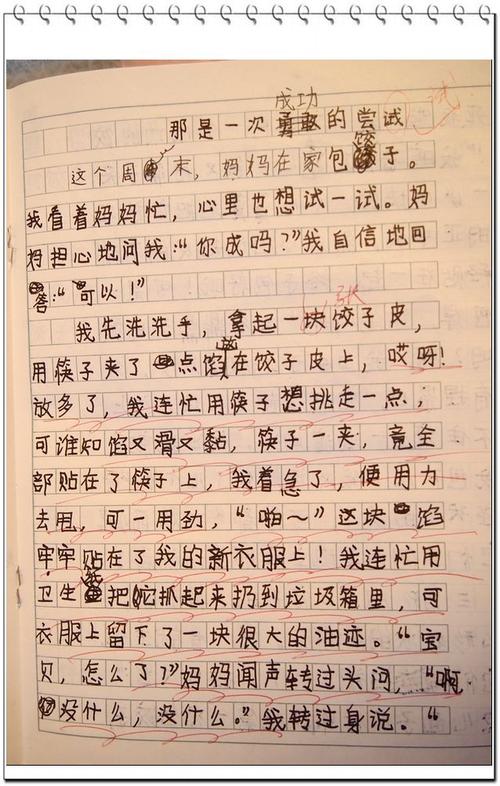 试
成功
那是一次勇敢的尝试
饺
这个周末，妈妈在家包子。
我看着妈妈忙，心里也想试一试。妈
妈担心地问我：“你成吗？”我自信地回
答：“可以！”
张
我先洗洗手，拿起一块饺子皮，
放
用筷子夹了一点馅在饺子皮上，哎呀！
放多了，我连忙用筷子想挑走一点，
可谁知馅又滑又黏，筷子一夹，竟全
部贴在了筷子上，我着急了，便用力
去甩，可一用劲，“啪～”这块馅
牢牢贴在了我的新衣服上！我连忙用
卫生纸把它抓起来扔到垃圾箱里，可
衣服上留下了一块很大的油迹。“宝
贝，怎么了？”妈妈闻声转过头问，“啊，
没什么，没什么。”我转过身说。“